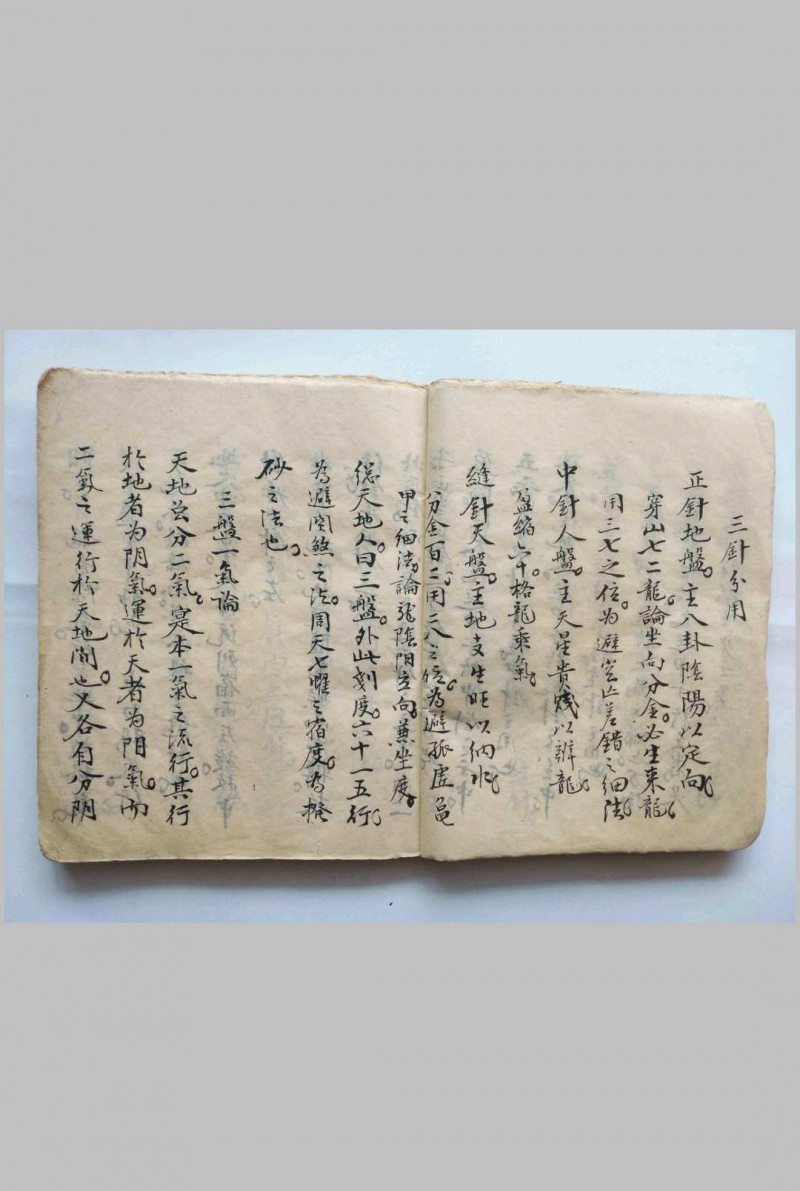 三針分用
正針地盤。主八卦陰陽以定向。
穿山七二龍。論坐向分金。必生来龍。
用三七之位。为避空亡差錯之細法。
中針人盤。主天星貴賤以辨龍。
盈縮六十格龍乘氣。
縫針天盤。主地支生旺以納水。
分金百二。用二八之位。为避孤虚龟
甲之細法。論龍陰阳立向。兼坐度。一
縂天地人曰三盤。外此刻度六十一五行。
为避関煞之法。周天七曜之宿度。为推
砂之法也。
三盤一氣論
天地总分二氣。寔本一氣之流行。其行
於地者为阴氣。運於天者为阳氣。而
二氣之運行於天地间也。又各自分阴